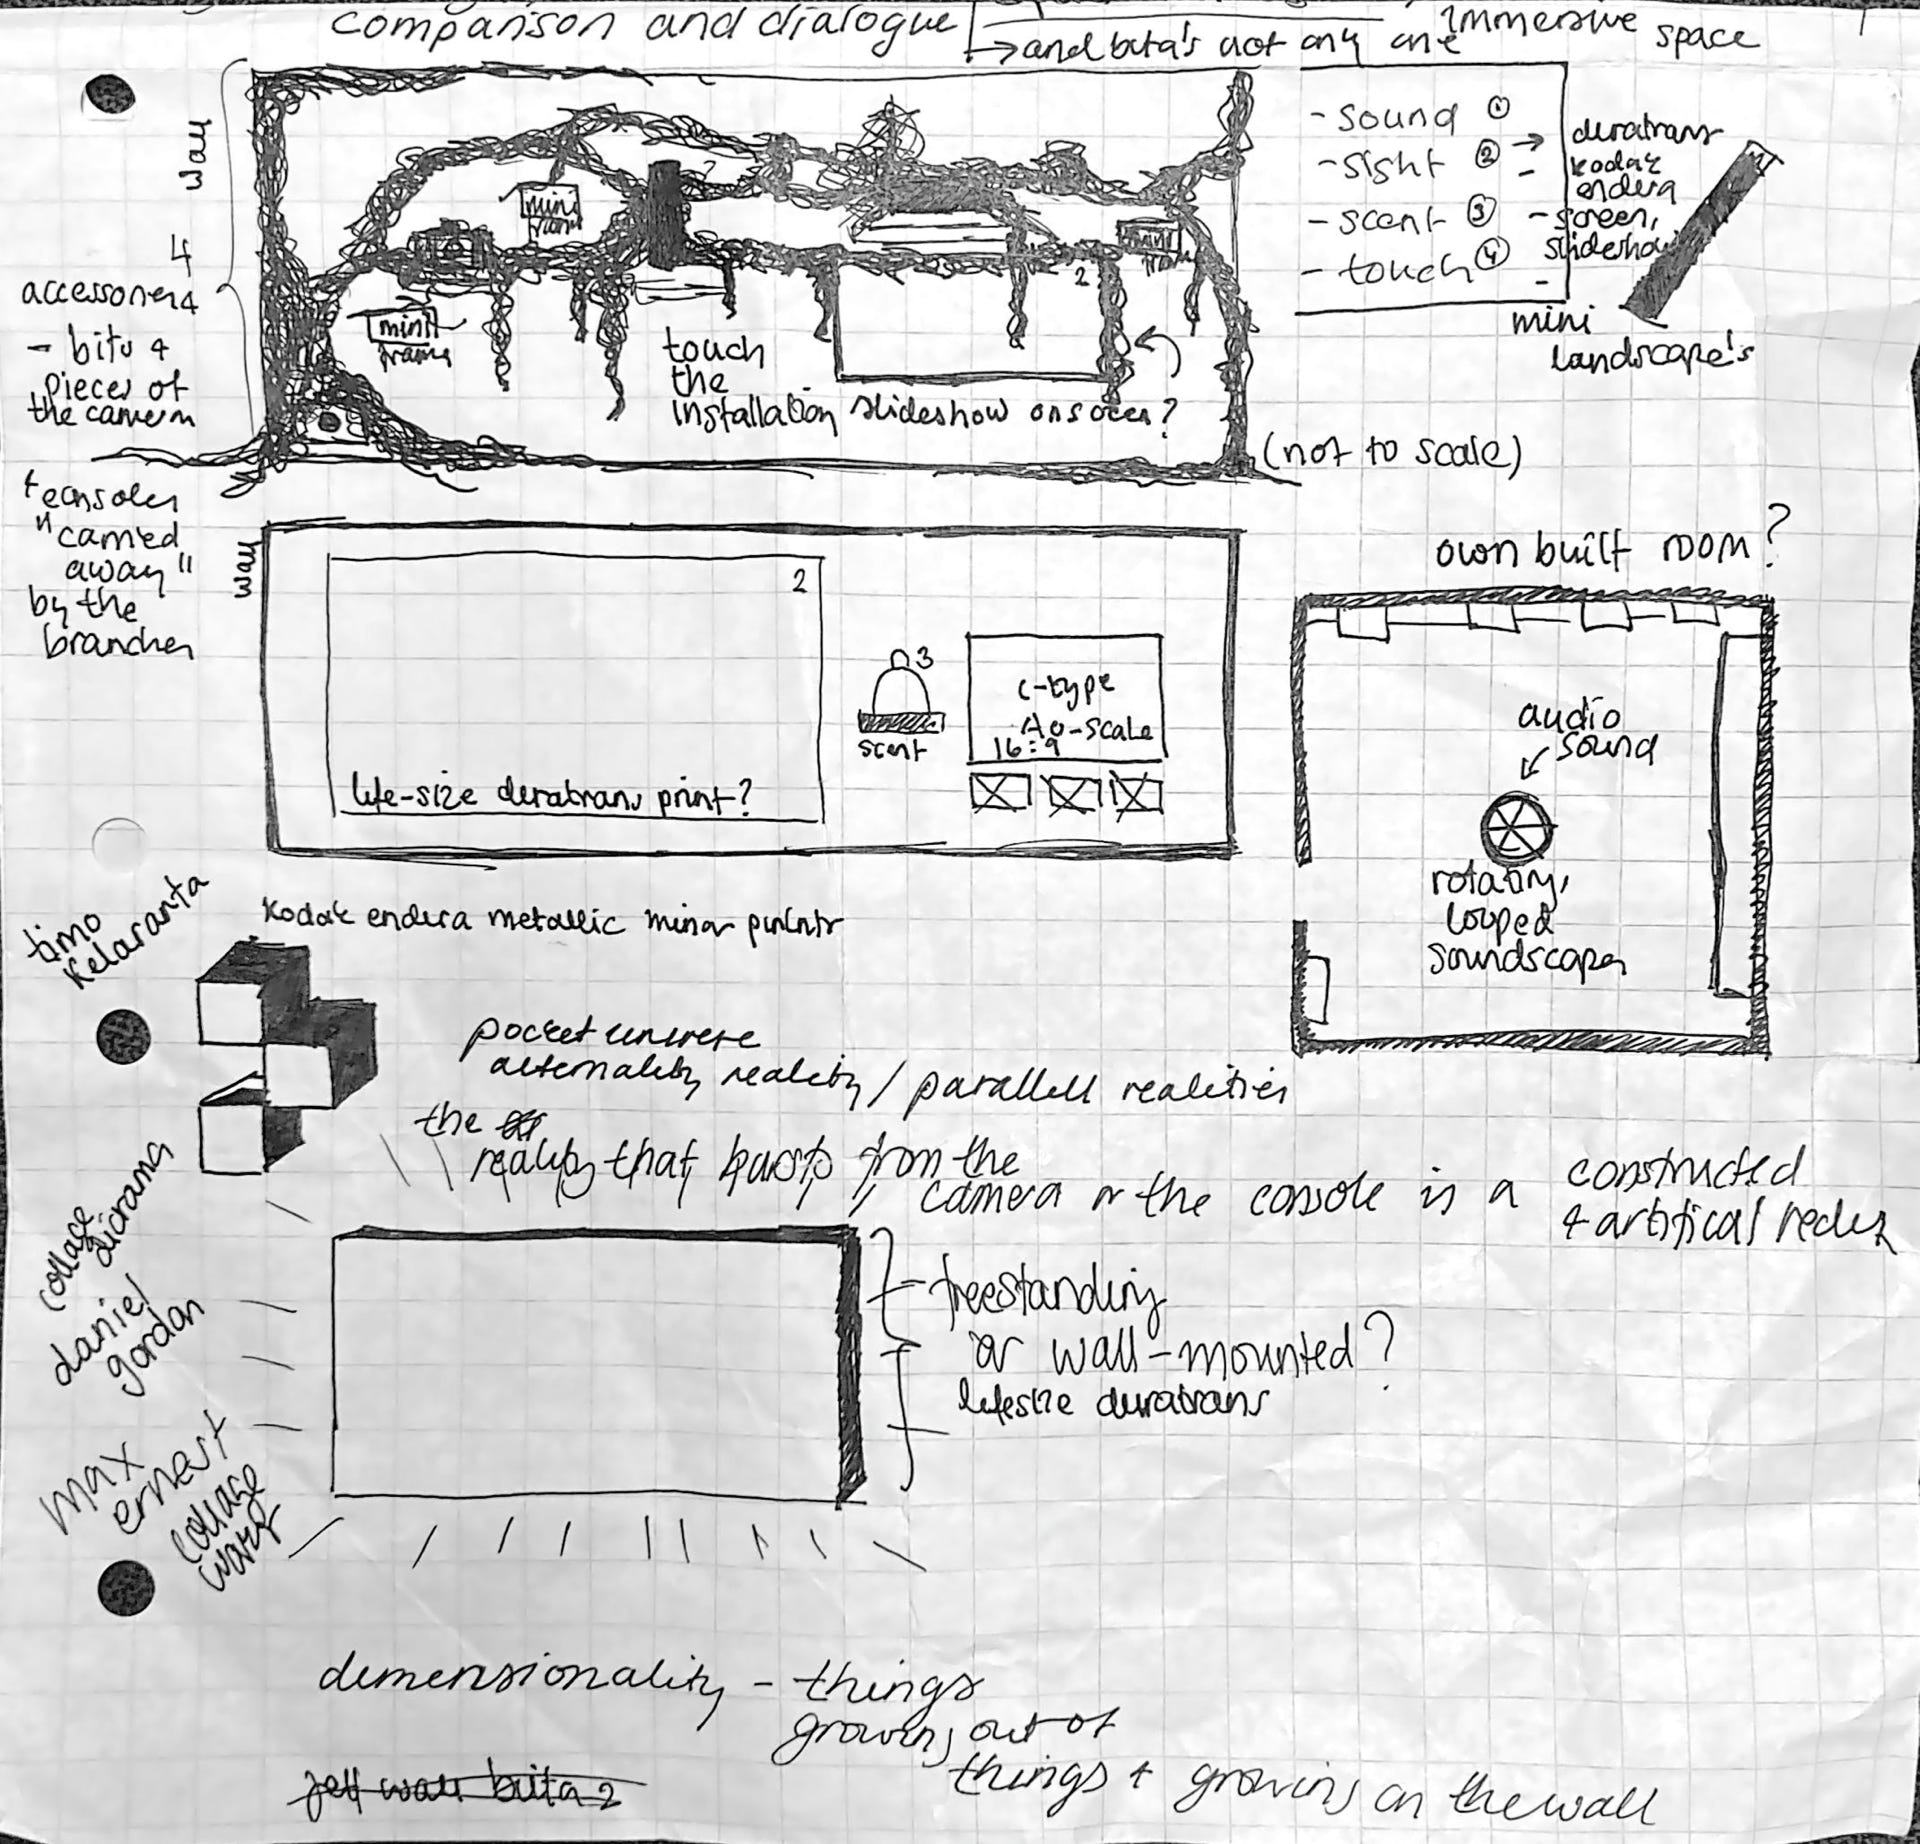 comparison and dialogue
immersive space
→ and beta's not any one
wall
- sound ①
- sight ② →
- scent ③ -
- touch ④ -
duratrans
kodak
endura
screen,
slideshow
mini
landscape's
mini
frame
mini
frame
mini
frame
2
touch
the
installation
slideshow on screen?
(not to scale)
4
- bits +
pieces of
the camera
+ consoles
"carried
away"
by the
branches
wall
2
life-size duratrans print?
3
scent
c-type
A0-scale
16:9
own built room?
audio
sound
rotating,
looped
soundscapes
timo
kelaranta
kodak endura metallic
pocket universe
reality / parallell realities
the
reality that bursts from the
camera or the console is a
constructed
+ artifical
collage
diorama
daniel
gordon
freestanding
or wall-mounted?
lifesize duratrans
max
ernest
collage
dimensionality - things
growing out of
things + growing on the wall
jeff wall